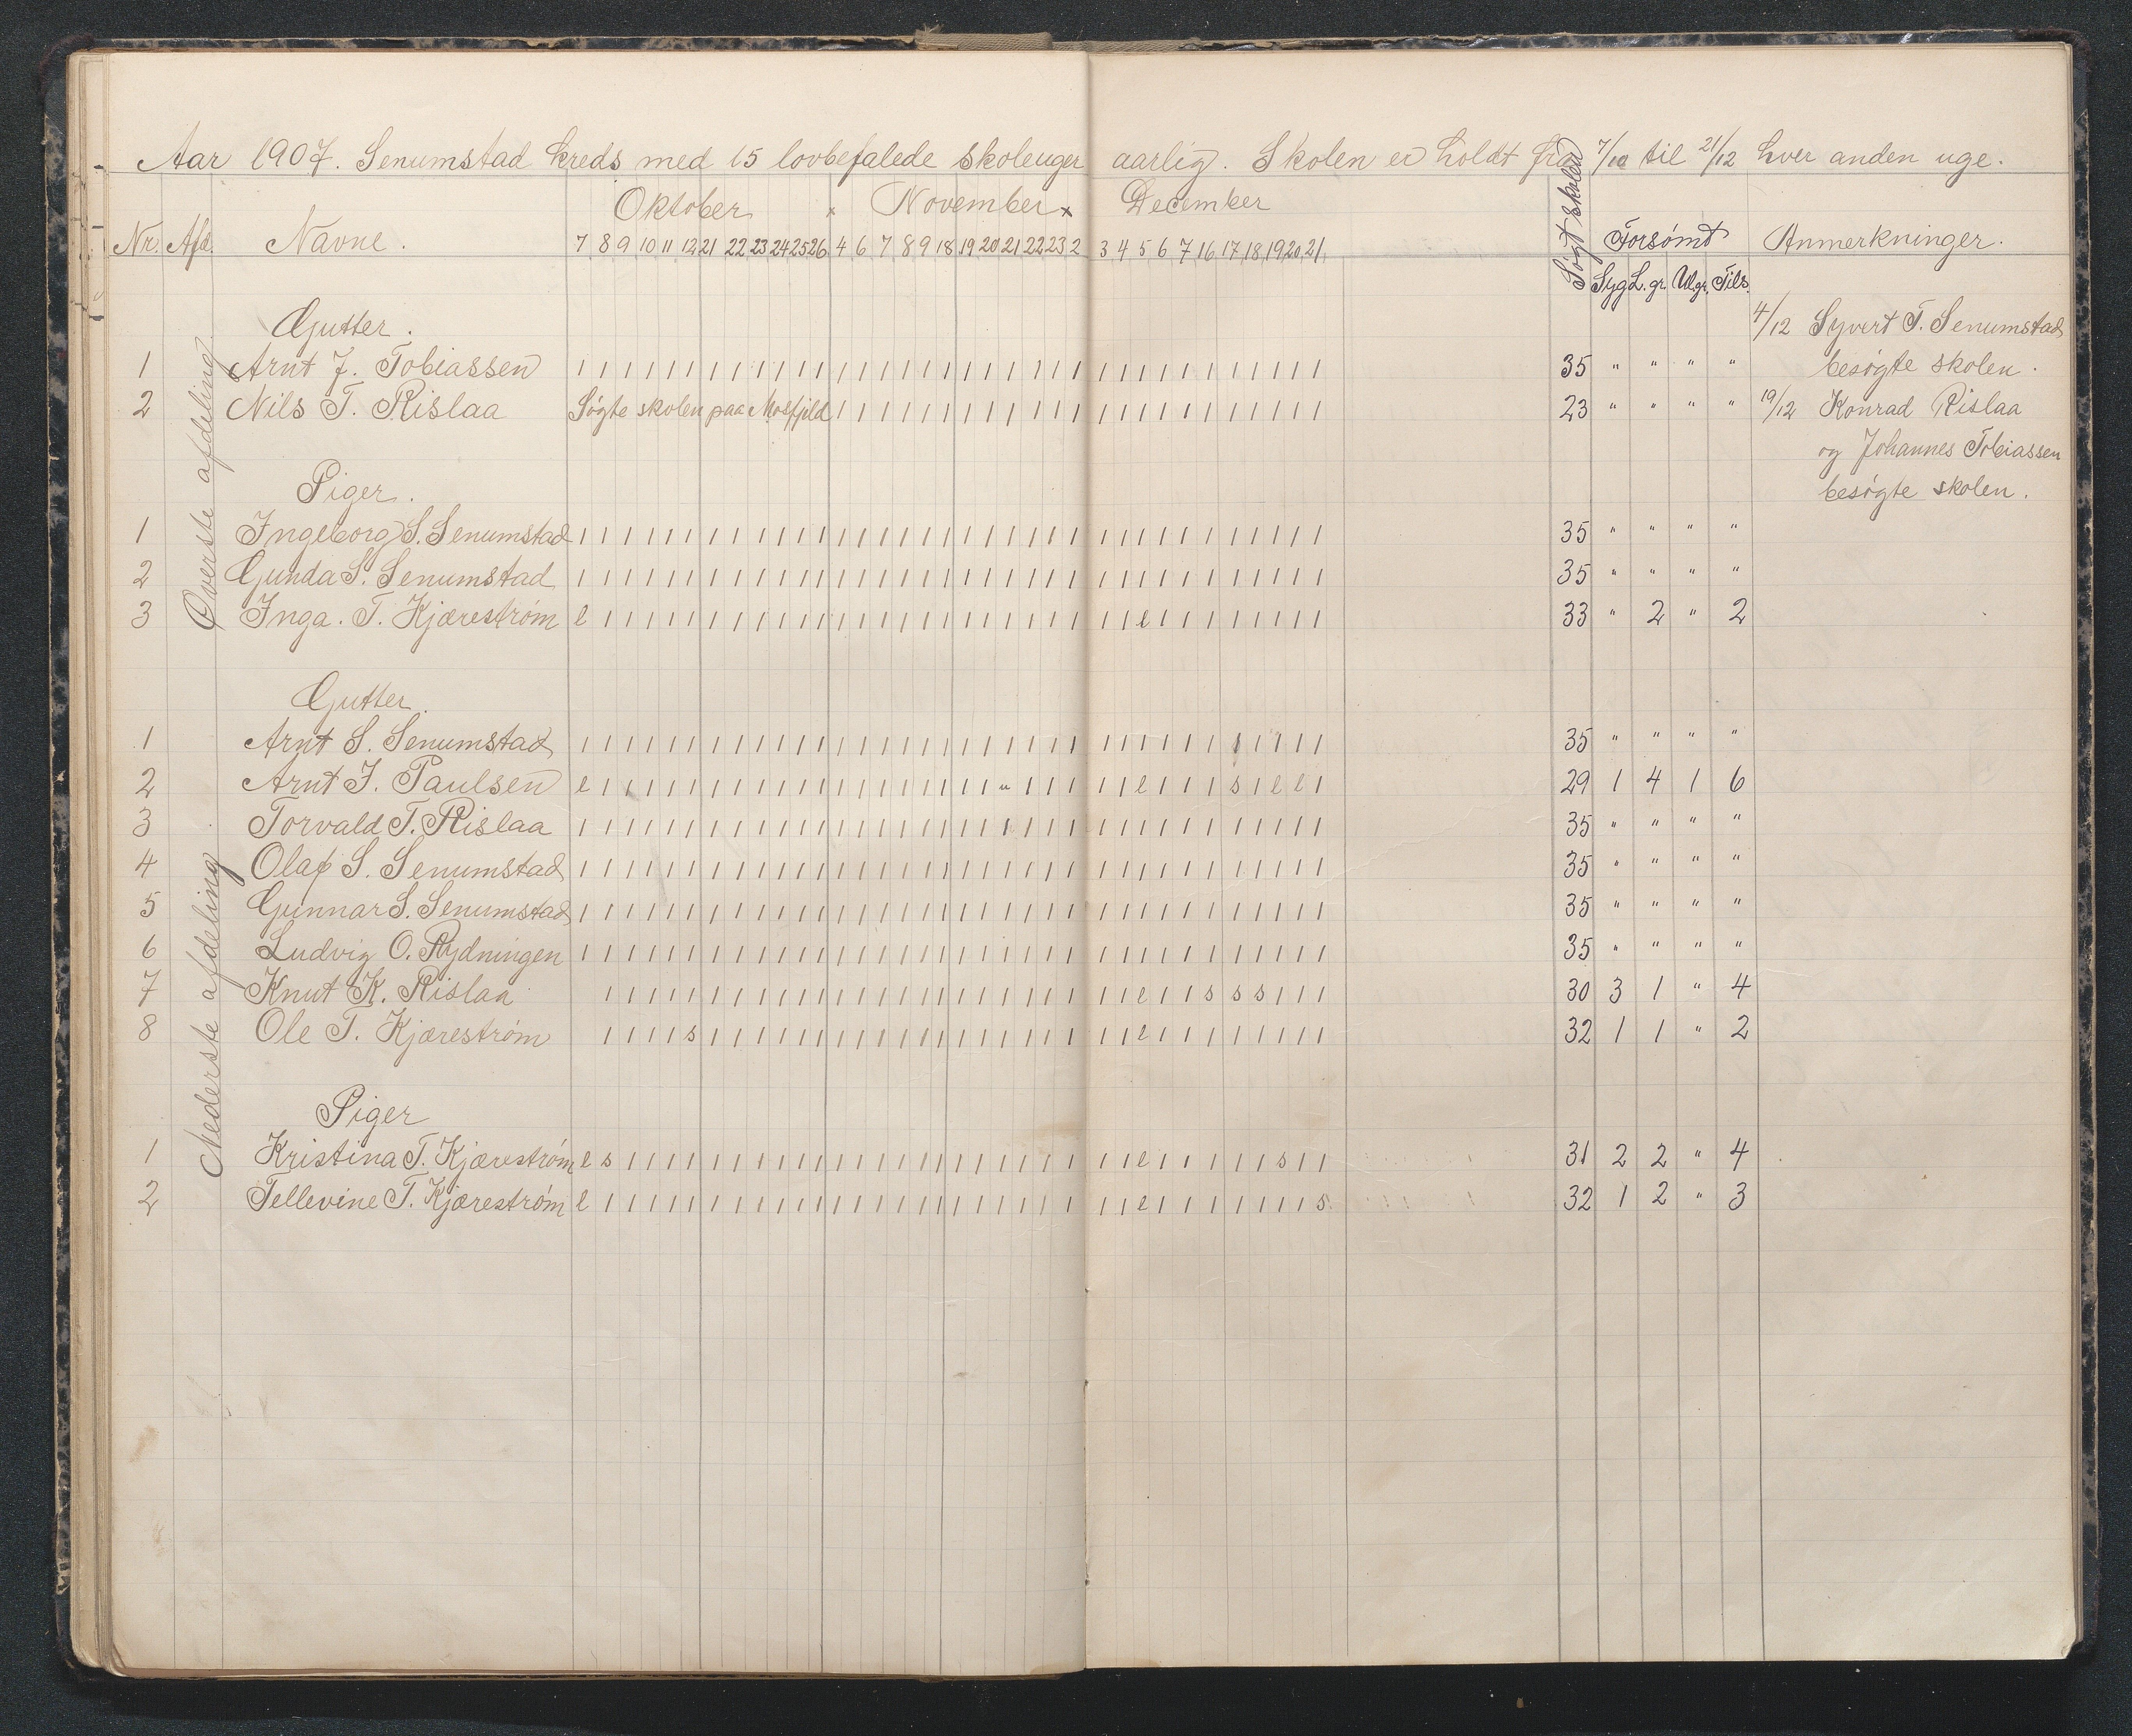 Aar 1907. Senumstad kreds med 15 lovbefalede skoleuger aarlig. Skolen er holdt fra 7/10 til 21/12 hver anden uge.
Oktober x November x December
Nr. Afd. Navne. 7 8 9 10 11 12 21 22 23 24 25 26 4 6 7 8 9 18 19 20 21 22 23 2 3 4 5 6 7 16 17 18 19 20 21 Søgt skolen Forsømt Anmerkninger.
Syg L. gr. Ul. gr. Tils.
Øverste afdeling
Gutter. 4/12 Syvert T. Senumstad
1 Arnt J. Tobiassen 1 1 1 1 1 1 1 1 1 1 1 1 1 1 1 1 1 1 1 1 1 1 1 1 1 1 1 1 1 1 1 1 1 1 1 35 " " " " besøgte skolen.
2 Nils T. Rislaa Søgte skolen paa Mosfjeld 1 1 1 1 1 1 1 1 1 1 1 1 1 1 1 1 1 1 1 1 1 1 1 23 " " " " 19/12 Konrad Rislaa
og Johannes Tobiassen
Piger. besøgte skolen.
1 Ingeborg S. Senumstad 1 1 1 1 1 1 1 1 1 1 1 1 1 1 1 1 1 1 1 1 1 1 1 1 1 1 1 1 1 1 1 1 1 1 1 35 " " " "
2 Gunda S. Senumstad 1 1 1 1 1 1 1 1 1 1 1 1 1 1 1 1 1 1 1 1 1 1 1 1 1 1 1 1 1 1 1 1 1 1 1 35 " " " "
3 Inga. T. Kjærestrøm l 1 1 1 1 1 1 1 1 1 1 1 1 1 1 1 1 1 1 1 1 1 1 1 1 1 l 1 1 1 1 1 1 1 1 33 " 2 " 2
Nederste afdeling
Gutter.
1 Arnt S. Senumstad 1 1 1 1 1 1 1 1 1 1 1 1 1 1 1 1 1 1 1 1 1 1 1 1 1 1 1 1 1 1 1 1 1 1 1 35 " " " "
2 Arnt J. Paulsen l 1 1 1 1 1 1 1 1 1 1 1 1 1 1 1 1 1 1 1 u 1 1 1 1 1 l 1 1 1 s 1 l l 1 29 1 4 1 6
3 Torvald T. Rislaa 1 1 1 1 1 1 1 1 1 1 1 1 1 1 1 1 1 1 1 1 1 1 1 1 1 1 1 1 1 1 1 1 1 1 1 35 " " " "
4 Olaf S. Senumstad 1 1 1 1 1 1 1 1 1 1 1 1 1 1 1 1 1 1 1 1 1 1 1 1 1 1 1 1 1 1 1 1 1 1 1 35 " " " "
5 Gunnar S. Senumstad 1 1 1 1 1 1 1 1 1 1 1 1 1 1 1 1 1 1 1 1 1 1 1 1 1 1 1 1 1 1 1 1 1 1 1 35 " " " "
6 Ludvig O. Rydningen 1 1 1 1 1 1 1 1 1 1 1 1 1 1 1 1 1 1 1 1 1 1 1 1 1 1 1 1 1 1 1 1 1 1 1 35 " " " "
7 Knut K. Rislaa 1 1 1 1 1 1 1 1 1 1 1 1 1 1 1 1 1 1 1 1 1 1 1 1 1 l 1 1 s s s 1 1 1 30 3 1 " 4
8 Ole T. Kjærestrøm 1 1 1 1 s 1 1 1 1 1 1 1 1 1 1 1 1 1 1 1 1 1 1 1 1 l 1 1 1 1 1 1 1 1 32 1 1 " 2
Piger
1 Kristina T. Kjærestrøm l s 1 1 1 1 1 1 1 1 1 1 1 1 1 1 1 1 1 1 1 1 1 1 1 1 l 1 1 1 1 1 s 1 1 31 2 2 " 4
2 Tellevine T. Kjærestrøm l 1 1 1 1 1 1 1 1 1 1 1 1 1 1 1 1 1 1 1 1 1 1 1 1 1 l 1 1 1 1 1 1 1 s 32 1 2 " 3